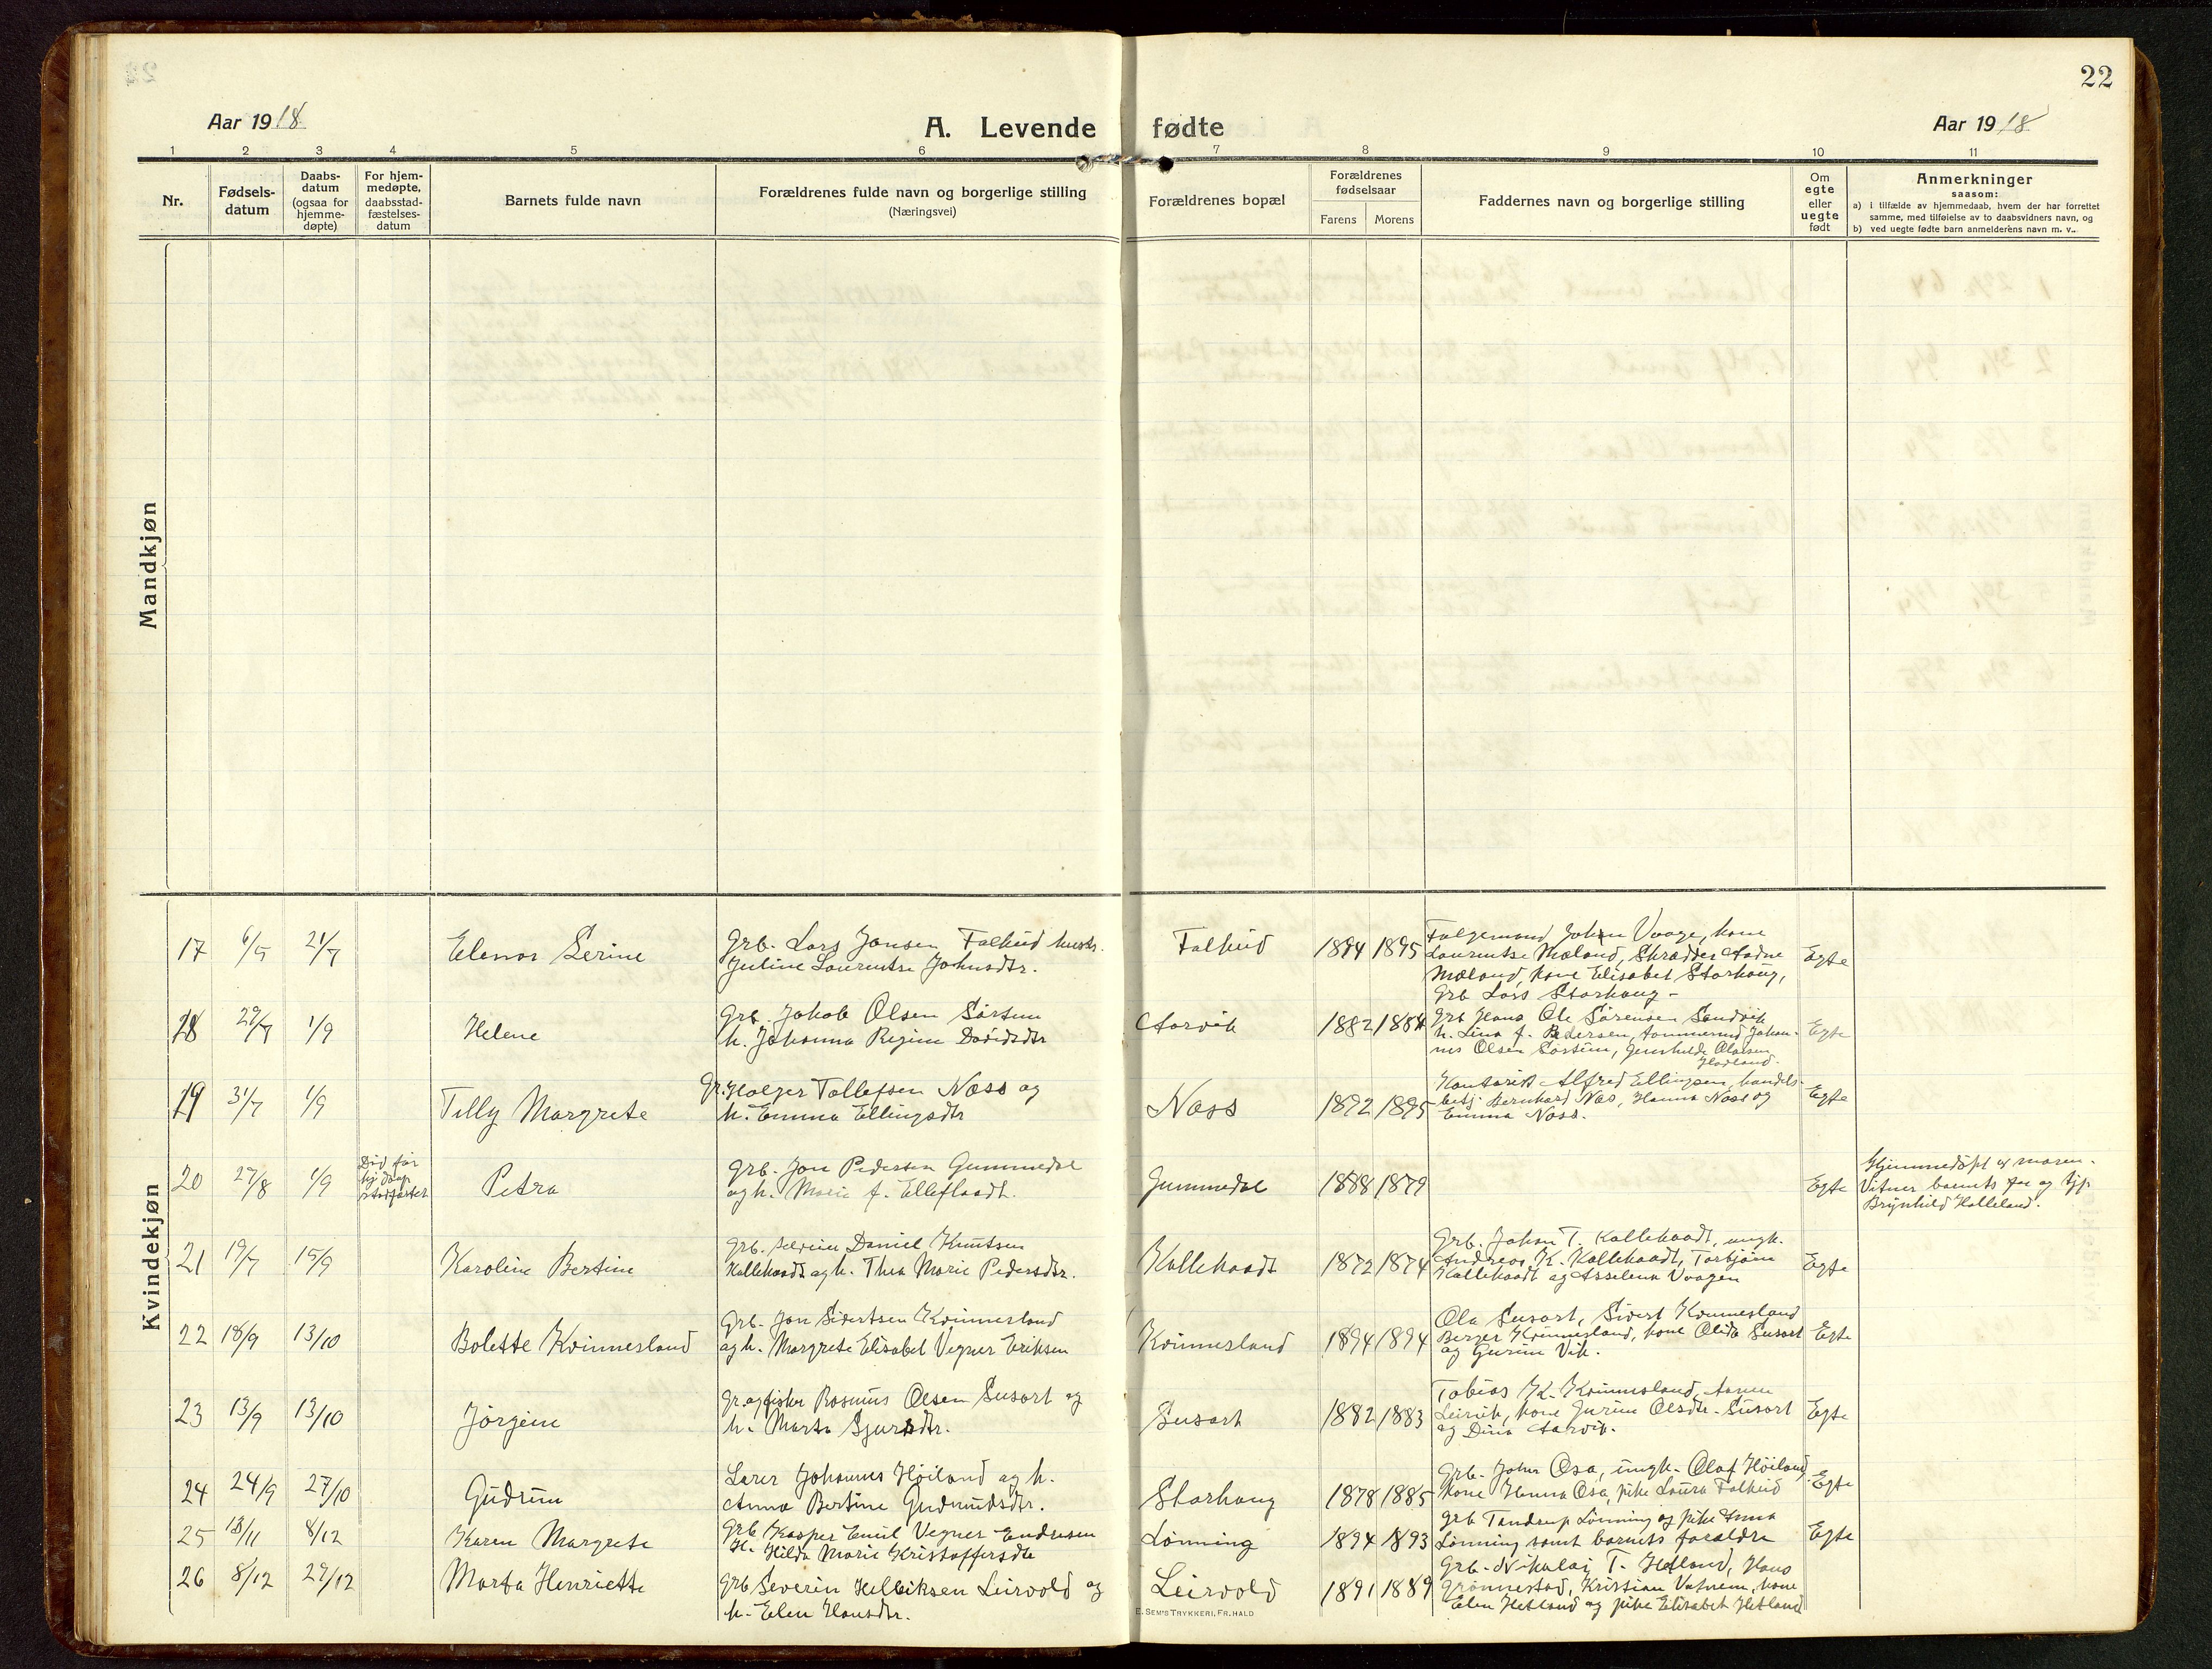 22
Aar 1918
A. Levende fødte
Aar 1918
1 2 3 4 5 6 7 8 9 10 11
Nr.
Fødsels-
datum
Daabs-
datum
(ogsaa for
hjemme-
døpte)
For hjem-
medøpte,
daabsstad-
fæstelses-
datum
Barnets fulde navn
Forældrenes fulde navn og borgerlige stilling
(Næringsvei)
Forældrenes bopæl
Forældrenes
fødselsaar
Farens Morens
Faddernes navn og borgerlige stilling
Om
egte
eller
uegte
født
Anmerkninger
saasom:
a) i tilfælde av hjemmedaab, hvem der har forrettet
samme, med tilføielse av to daabsvidners navn, og
b) ved uegte fødte barn anmelderens navn m. v..
Mandkjøn
Kvindekjøn
17 6/5 21/7
Elenor Serine
Grb. Lars Jansen Falkeid hustr.
Juline Laurentse Johnsdtr.
Falkeid
1894 1895
Falgemand Johan Vaage, kone
Laurentse Mæland, Skrædder Aadne
Mæland, kone Elisabet Storhaug,
Grb Lars Storhaug -
Egte
18 29/7 1/9
Helene
Grb. Jakob Olsen Sørtun
h. Johanna Regine Davidsdtr
Aarvik
1882 1884
Grb Hans Ole Sørensen Sandvik
h. Lina f. Pedersen, tømmermd Johan-
nes Olsen Sørtun, Gunhilde Olavsen
Hovland.
Egte
19 31/7 1/9
Tilly Margrete
Gr. Holger Tollefsen Næss og
h. Emma Ellingsdtr
Næss
1892 1895
Kontorist Alfred Ellingsen, handels-
betj. Bernhard Næs, Hanna Næss og
Emma Næss.
Egte
20 27/8 1/9
Død før
hj. daap.
stadfæstet
Petra
Grb. Jon Pedersen Gummedal
og h. Marie f. Elleflaadt.
Gummedal
1888 1879
Egte
Hjemmedøpt af moren.
Vitner barnets far og tjp.
Brynhild Halleland.
21 19/7 15/9
Karoline Bertine
Grb. Severin Daniel Knutsen
Kallekodt og h. Thea Marie Pedersdtr.
Kallekodt
1872 1874
Grb. Johan T. Kallekodt, ungk.
Andreas K. Kallekodt, Torbjørn
Kallekodt og Asselena Vaagen
Egte
22 18/9 13/10
Bolette Kvinnesland
Grb. Jon Sivertsen Kvinnesland
og h. Margrete Elisabet Vegner Eriksen
Kvinnesland
1894 1894
Ola Susort, Sivert Kvinnesland
Berger Kvinnesland, kone Olida Susort
og Gurine Vik.
Egte
23 13/9 13/10
Jørgine
Gr. og fisker Rasmus Olsen Susort og
h. Marta Sjursdtr.
Susort
1882 1883
Tobias K. Kvinnesland,
Leirvik, kone Jurine Olsdtr. Susort
og Dina Aarvik.
Egte
24 24/9 27/10
Gudrun
Lærer Johannes Høiland og h.
Anna Bertine Gudmundsdtr.
Storhaug
1878 1885
Grb. Johan Osa, ungk. Olaf Høiland,
kone Hanna Osa, pike Laura Falkeid
Egte
25 18/11 8/12
Karen Margrete
Grb Kasper Emil Vegner Endresen
H. Hilda Marie Kristoffersdtr
Lønning
1894 1893
Grb Tandrup Lønning og pike Anna
Lønning samt barnets forældre
Egte
26 8/12 29/12
Marta Henriette
Grb Severin Helliksen Leirvold og
h. Elen Hansdtr.
Leirvold
1891 1889
Grb. Nikolai T. Hetland, Hans
Grønnestad, Kristian Vatnem, kone
Elen Hetland og pike Elisabet Hetland
E. SEM'S TRYKKERI, FR.HALD